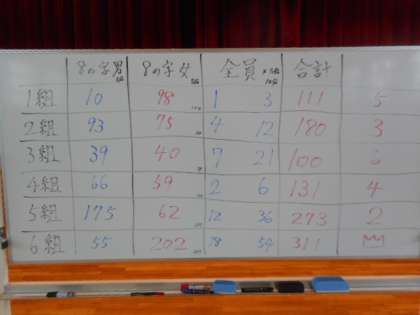 8の字男 8の字女 全員 合計
1組 10 98 1 3 111 5
2組 93 75 4 12 180 3
3組 39 40 7 21 100 6
4組 66 59 2 6 131 4
5組 175 62 12 36 273 2
6組 55 202 18 54 311